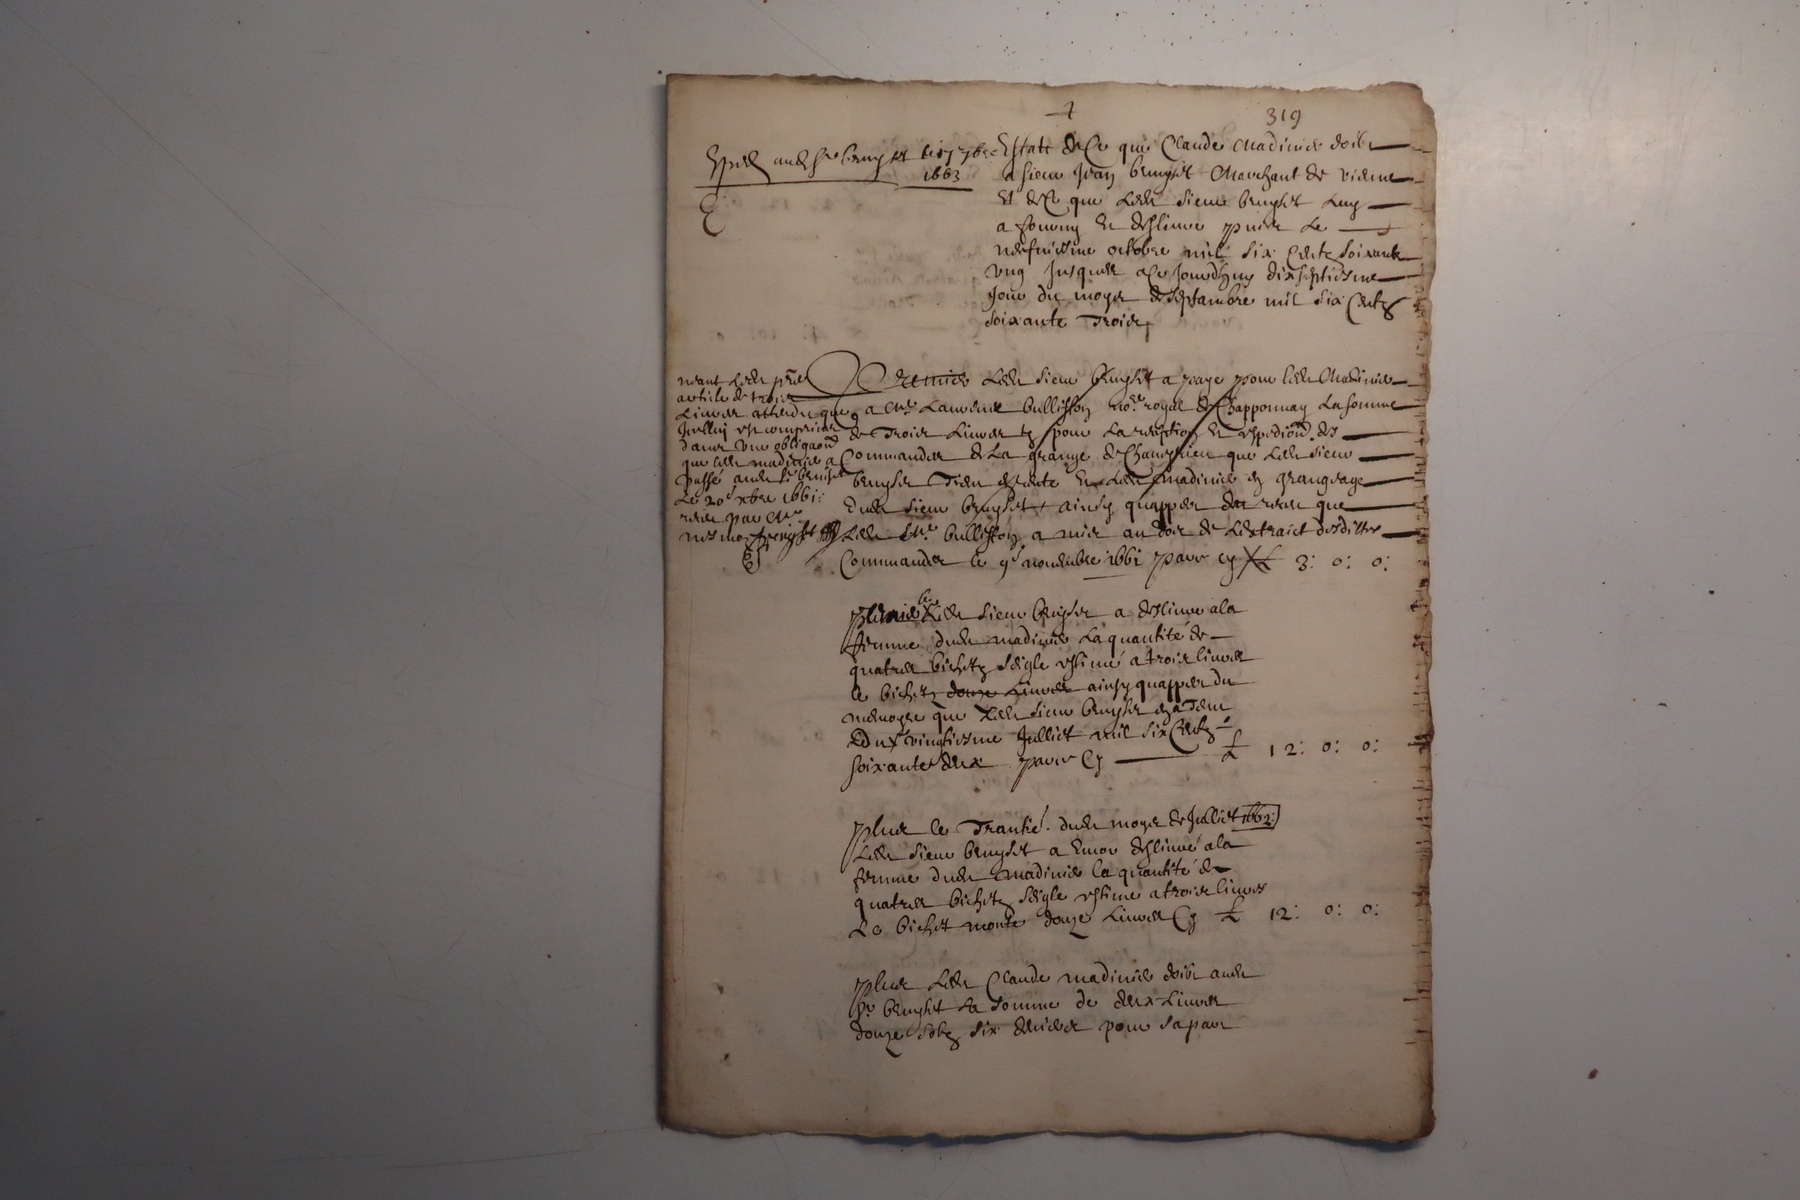 319
Estatt de Ce que Claude Madinier doibt
a sieur Jean bruyset Marchant de vienne
Et de Ce que Ledit sieur bruyset Luy
a fourny Et deslivre puis Le
neufviesme octobre mil six Centz soixante
ung Jusques a Ce Jourdhuy dixseptiesme
Jour du moys de Septambre mil six Centz
soixante Trois
Expedié audit sr bruyset le 17 7bre
1663
Premier Ledit sieur bruyset a paye pour ledit Madinier
a Me Laurens bullisson nore royal de Chapponnay La somme
de Trois Livres pour La reception Et expedion des
Commandes de La grange de Champrieu que Ledit sieur
bruyset Tient Et Ledit madinier en grangeage
dudit sieur bruyset ainsy quappert que
Ledit Me bullisson a mis au dos de Lextraict desdittes
Commandes le 9e novembre 1661 pour cy 3: 0: 0:
neant Ledit pnt
article de trois
Livres attendu que
Jcelluy est comprins
dans une obligaon
que ledit madinier a
passé audit sr bruyset
Le 20e xbre 1661:
par Me
Ledit sieur bruyset a deslivre a la
femme dudit madinier La quantité de
quatres bichetz seigle estimé a trois livres
le bichetz douze Livres ainsy quappert du
memoyre que Ledit sieur bruyset en a Tenu
Du vingtiesme Julliet mil six Centz
soixante deux pour Cy £ 12: 0: 0:
Plus le Trantie. dudit moys de Julliet 1662:
Ledit sieur bruyset a Encor deslivré a la
femme dudit madinier la quantité de
quatres bichetz seigle estime a trois livres
Le bichet monte douze Livres Cy £ 12: 0: 0:
Plus Ledit Claude madinier doibt audit
sr bruyset La somme de deux Livres
douze solz six deniers pour sa part